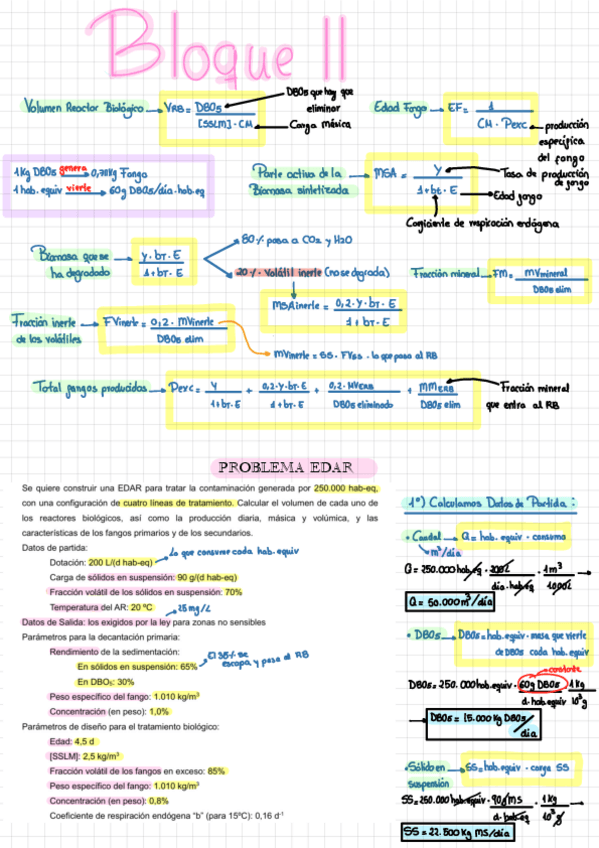 Bloque II
Volumen Reactor Biológico → VRB = DBO5 / [SSLM] · CM
DBO5 que hay que eliminar
Carga másica
Edad Fango → EF = 1 / CM · Pexc
producción específica del fango
1 Kg DBO5 genera → 0,70Kg Fango
1 hab. equiv vierte → 60g DBO5/día·hab.eq
Parte activa de la Biomasa sintetizada → MSA = Y / 1+bT · E
Tasa de producción de fango
Edad fango
Coeficiente de respiración endógena
Biomasa que se ha degradado → Y · bT · E / 1+bT · E
80% pasa a CO2 y H2O
20% Volátil inerte (no se degrada)
MSAinerte = 0,2 · Y · bT · E / 1+bT · E
Fracción mineral → FM = MVmineral / DBO5 elim
Fracción inerte de los volátiles → FVinerte = 0,2 · MVinerte / DBO5 elim
MVinerte = SS · FVss · lo que pasa al RB
Total fangos producidos → Pexc = Y / 1+bT·E + 0,2·Y·bT·E / 1+bT·E + 0,2·MVERB / DBO5 eliminado + MMERB / DBO5 elim
Fracción mineral que entra al RB
PROBLEMA EDAR
Se quiere construir una EDAR para tratar la contaminación generada por 250.000 hab-eq,
con una configuración de cuatro líneas de tratamiento. Calcular el volumen de cada uno de
los reactores biológicos, así como la producción diaria, másica y volúmica, y las
características de los fangos primarios y de los secundarios.
Datos de partida:
Dotación: 200 L/(d hab-eq) → Lo que consume cada hab. equiv
Carga de sólidos en suspensión: 90 g/(d hab-eq)
Fracción volátil de los sólidos en suspensión: 70%
Temperatura del AR: 20 ºC
Datos de Salida: los exigidos por la ley para zonas no sensibles → 25 mg/L
Parámetros para la decantación primaria:
Rendimiento de la sedimentación:
En sólidos en suspensión: 65% → El 35% se escapa y pasa al RB
En DBO5: 30%
Peso específico del fango: 1.010 kg/m3
Concentración (en peso): 1,0%
Parámetros de diseño para el tratamiento biológico:
Edad: 4,5 d
[SSLM]: 2,5 kg/m3
Fracción volátil de los fangos en exceso: 85%
Peso específico del fango: 1.010 kg/m3
Concentración (en peso): 0,8%
Coeficiente de respiración endógena "b" (para 15ºC): 0,16 d-1
1º) Calculamos Datos de Partida:
• Caudal → Q = hab. equiv · consumo
m3/día
Q = 250.000 hab.eq · 200L / día · hab.eq · 1m3 / 1000L →
Q = 50.000 m3/día
• DBO5 → DBO5 = hab.equiv · masa que vierte de DBO5 cada hab. equiv
constante
DBO5 = 250.000 hab.equiv · 60g DBO5 / d·hab.equiv · 1kg / 10³g
→ DBO5 = 15.000 Kg DBO5/día
• Sólido en suspensión → SS = hab.equiv · carga SS
SS = 250.000 hab.equiv · 90g MS / d·hab.eq · 1kg / 10³g →
SS = 22.500 Kg MS/día